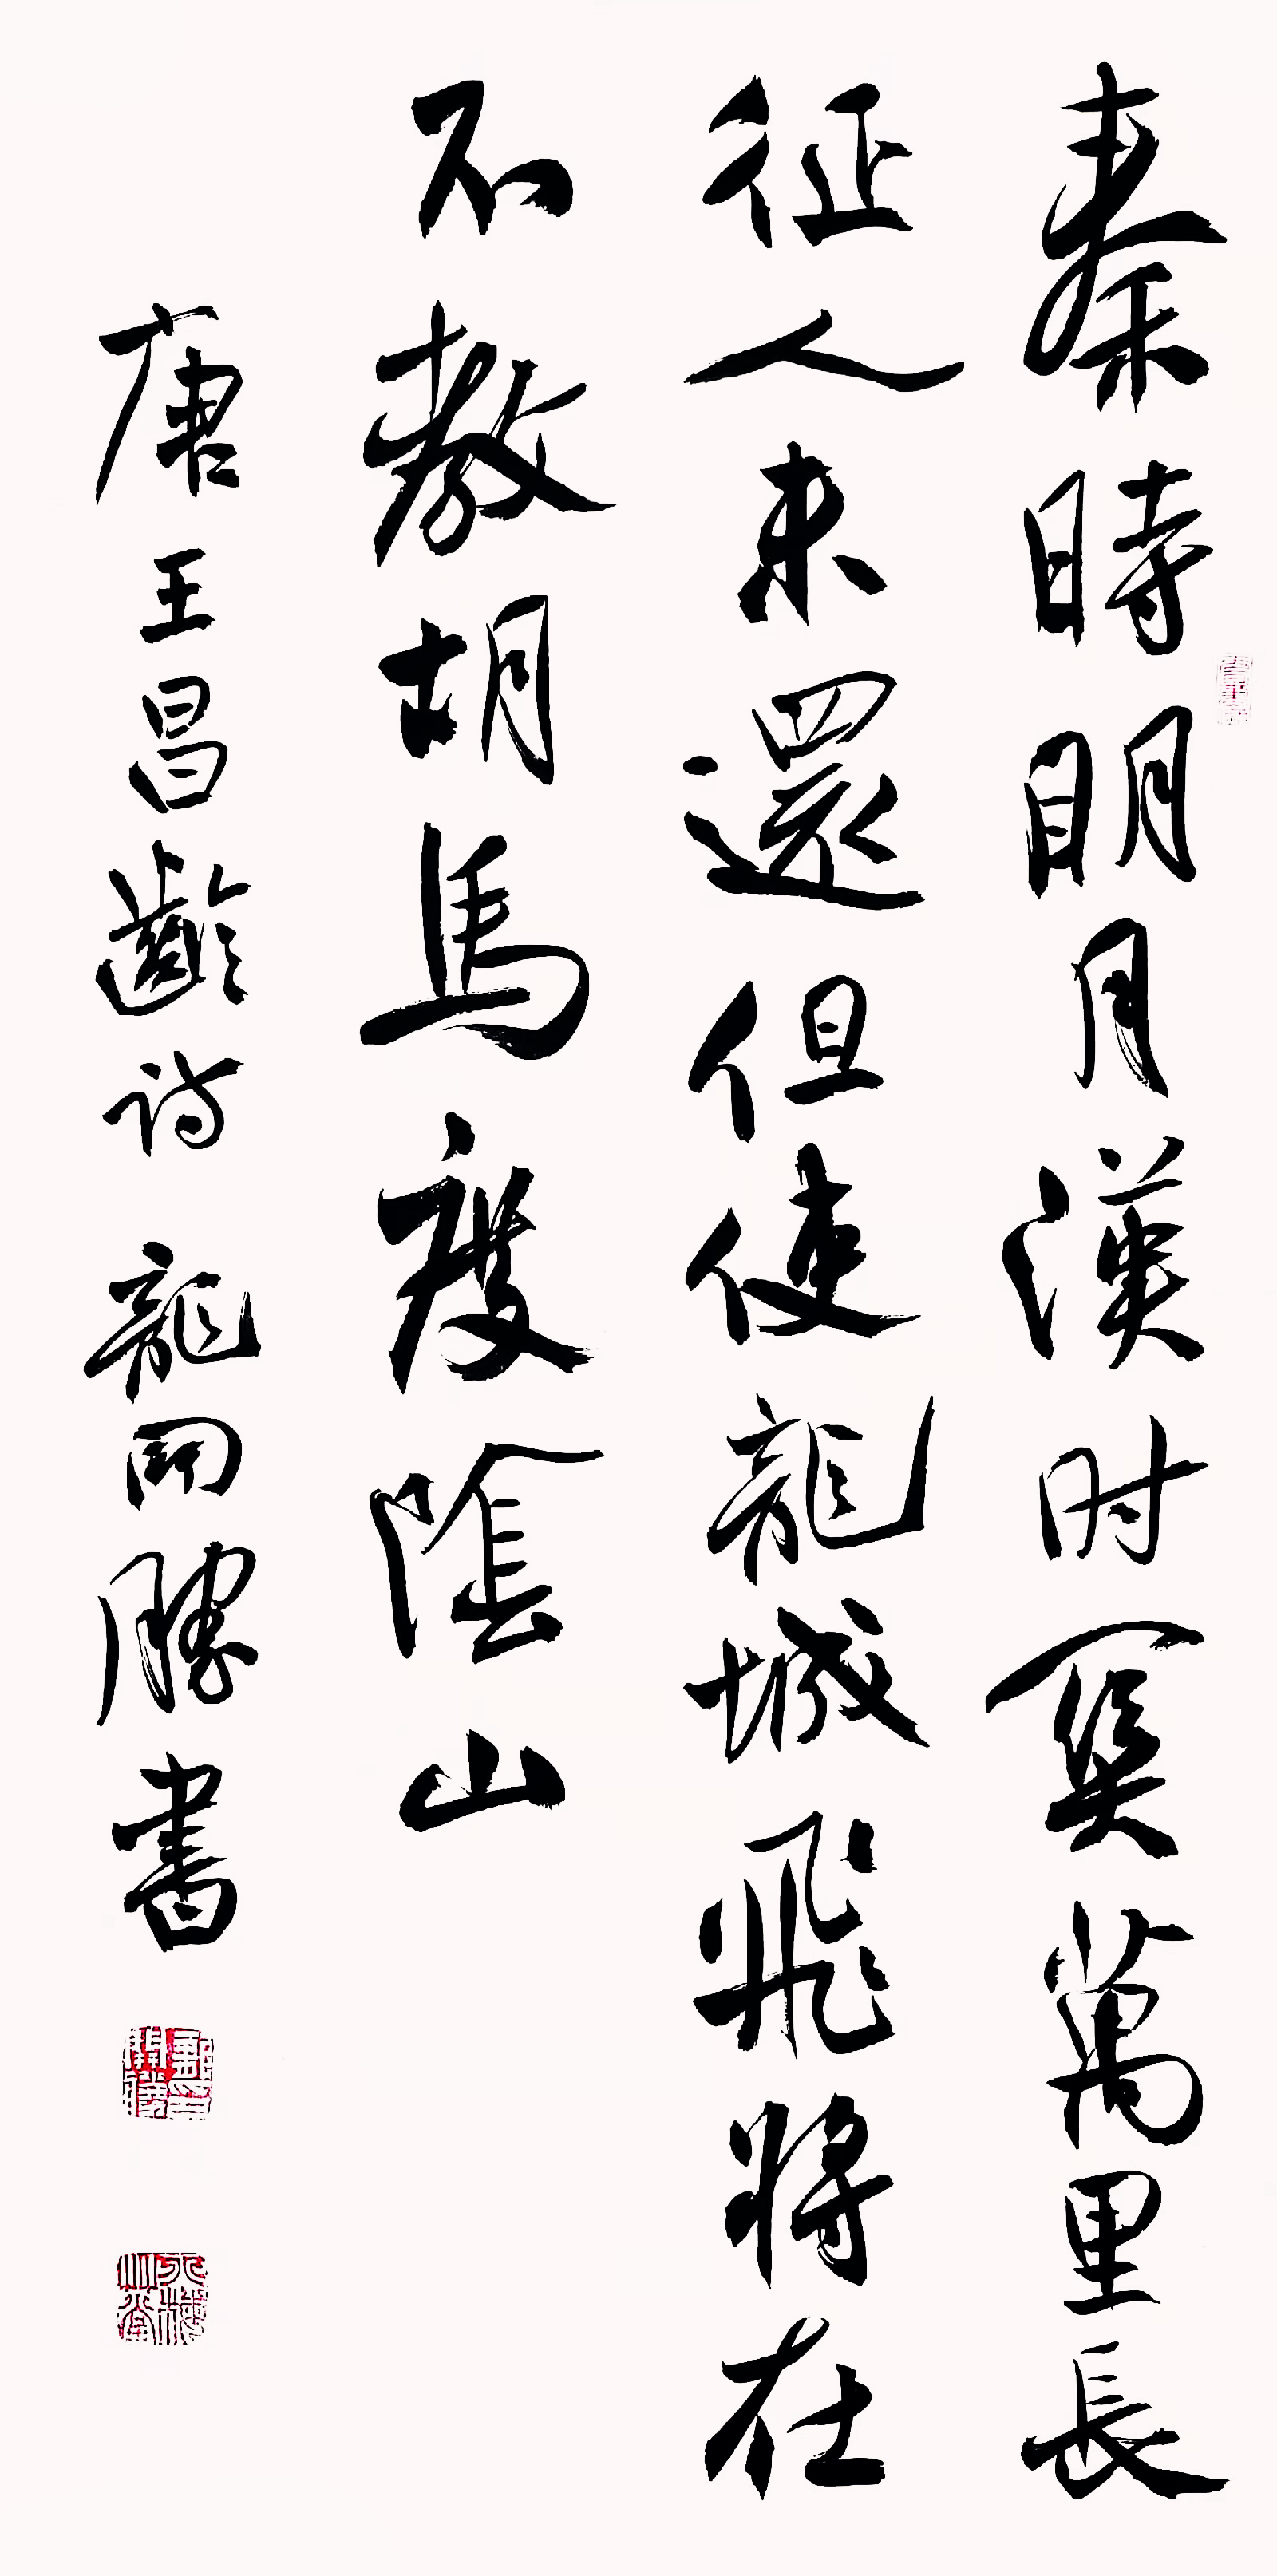 秦時明月漢时関萬里長
征人未還但使龍城飛將在
不教胡馬度陰山
唐王昌齡詩 龍開勝書